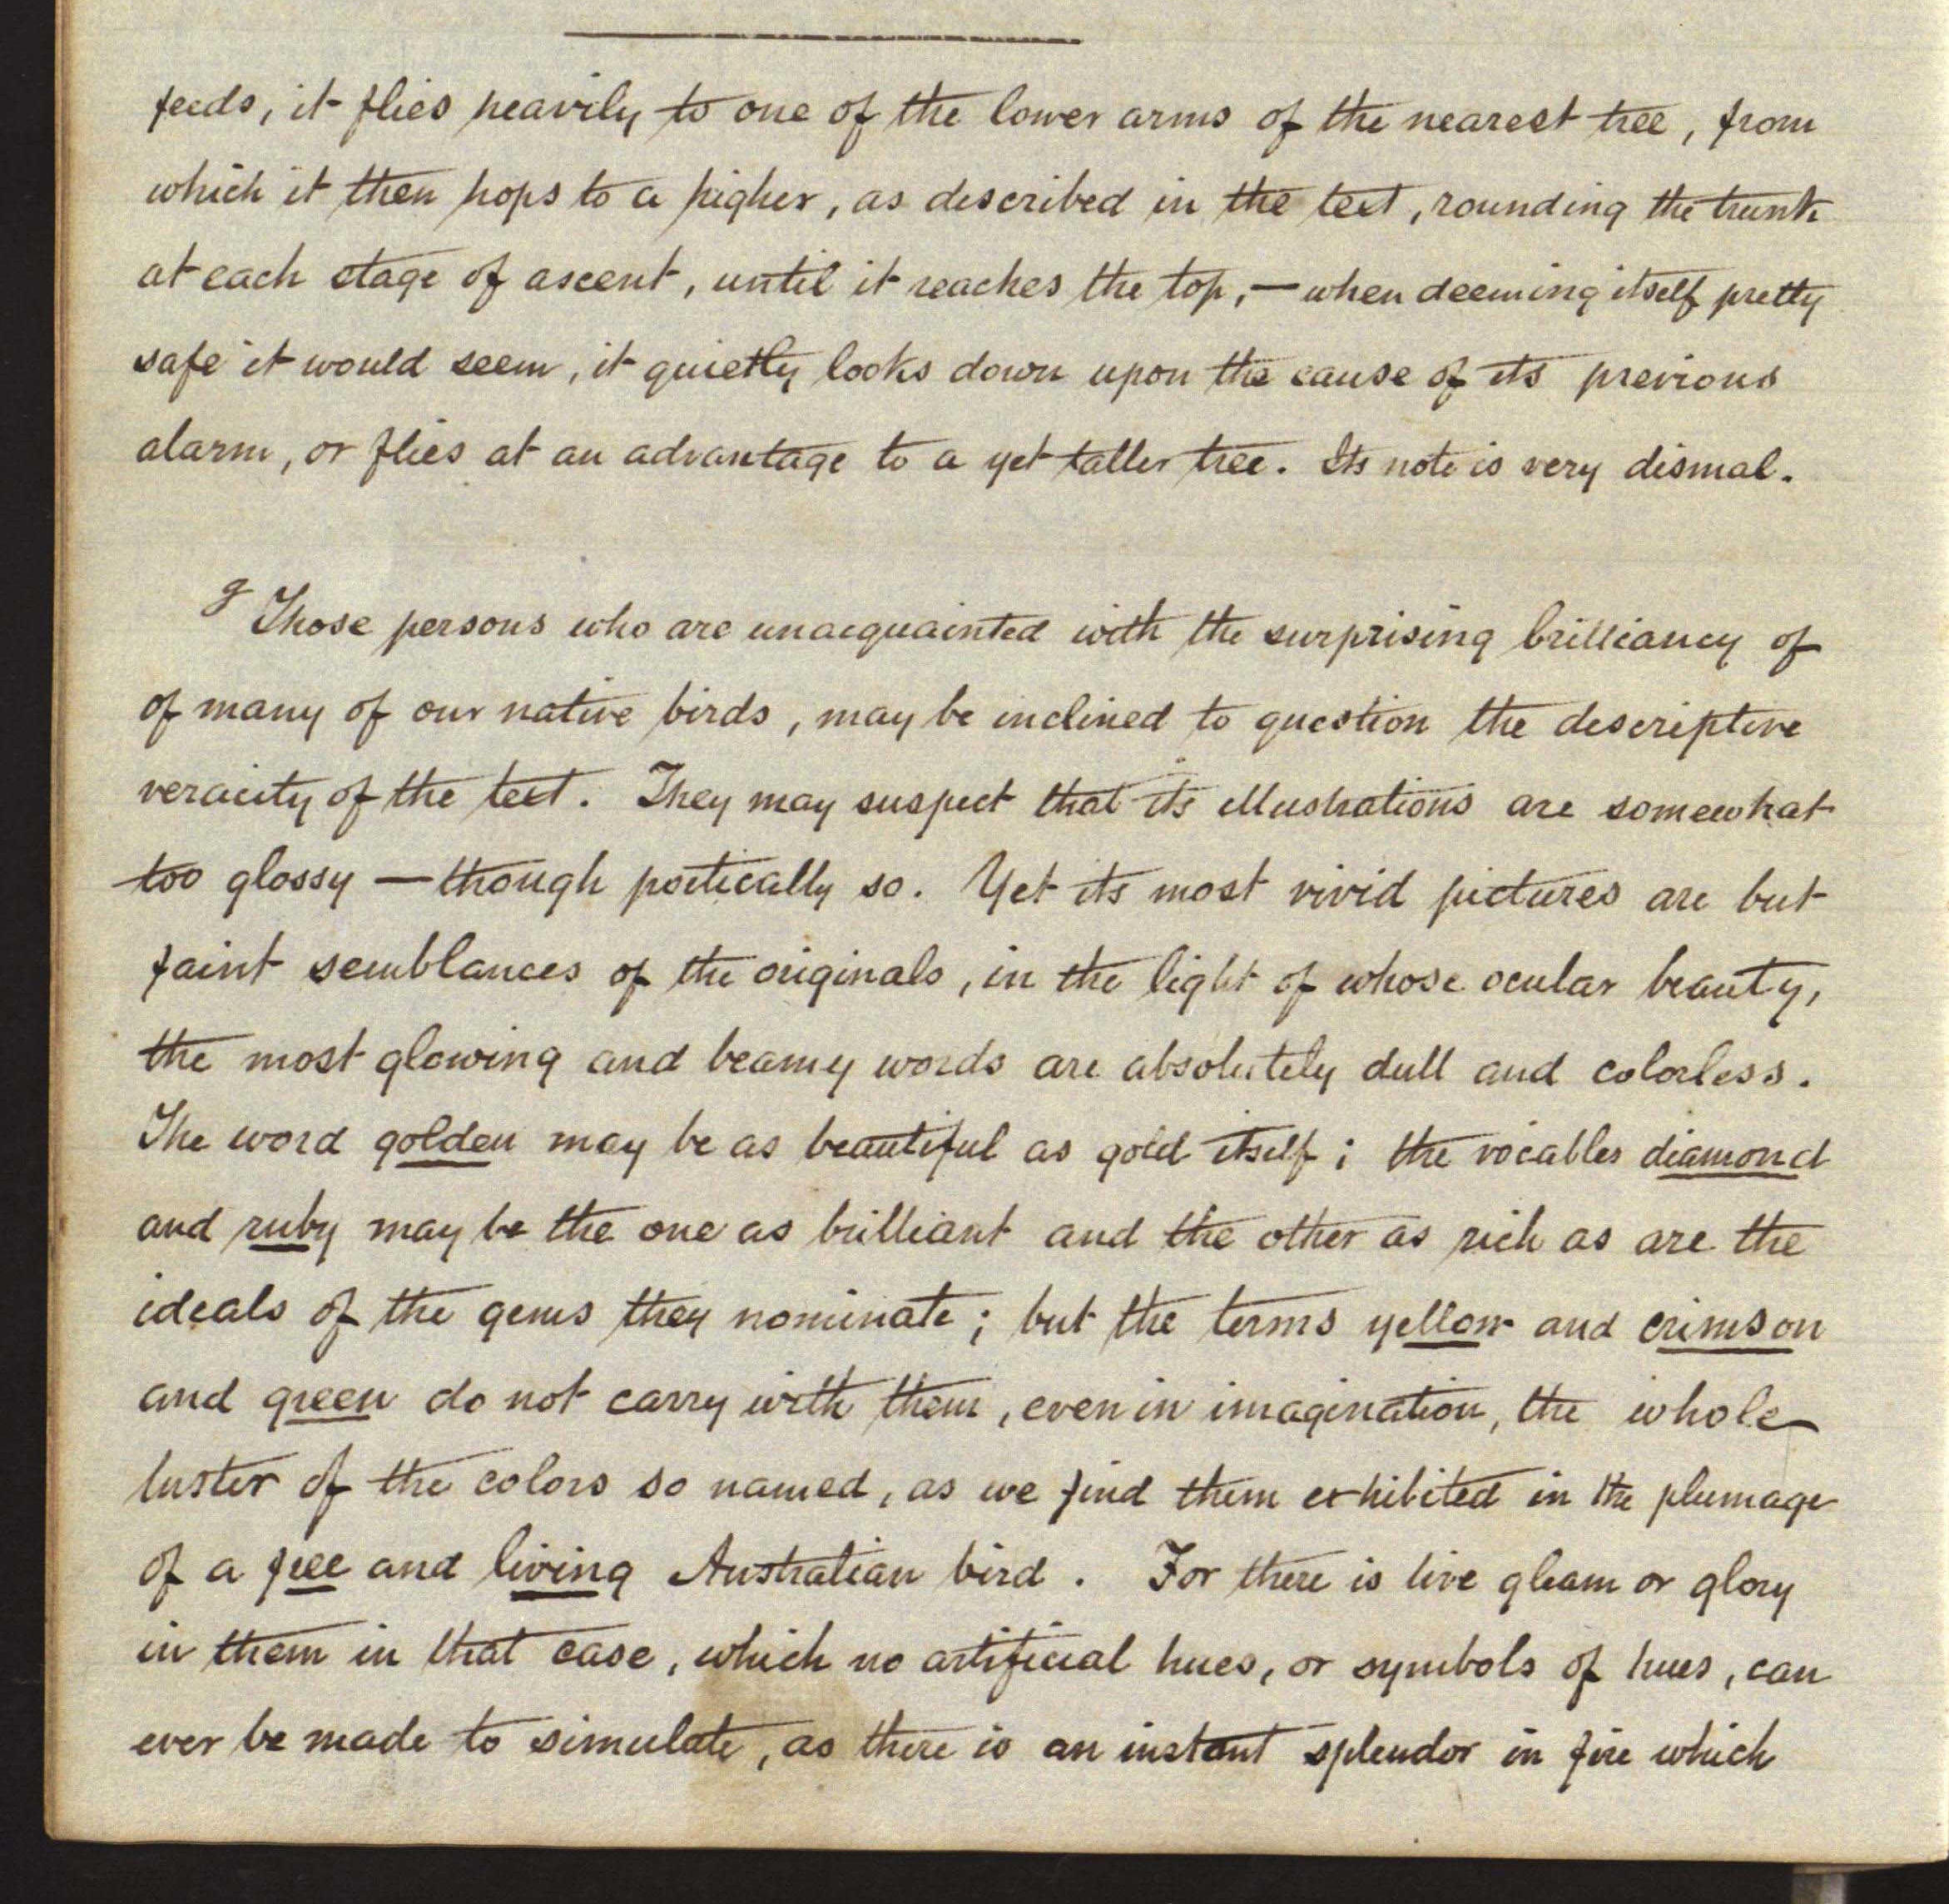 feeds, it flies heavily to one of the lower arms of the nearest tree, from
which it then hops to a higher, as described in the text, rounding the trunk
at each stage of ascent, until it reaches the top,— when deeming itself pretty
safe it would seem, it quietly looks down upon the cause of its previous
alarm, or flies at an advantage to a yet taller tree. Its note is very dismal.
g Those persons who are unacquainted with the surprising brilliancy of
of many of our native birds, may be inclined to question the descriptive
veracity of the text. They may suspect that its illustrations are somewhat
too glossy — though poetically so. Yet its most vivid pictures are but
faint semblances of the originals, in the light of whose ocular beauty,
the most glowing and beamy words are absolutely dull and colorless.
The word golden may be as beautiful as gold itself; the vocables diamond
and ruby may be the one as brilliant and the other as rich as are the
ideals of the gems they nominate; but the terms yellow and crimson
and green do not carry with them, even in imagination, the whole
luster of the colors so named, as we find them exhibited in the plumage
of a free and living Australian bird. For there is live gleam or glory
in them in that case, which no artificial hues, or symbols of hues, can
ever be made to simulate, as there is an instant splendor in fire which